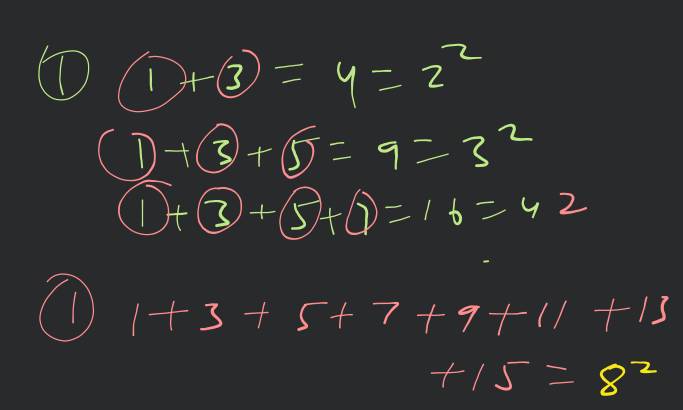 ① 1+3 = 4 = 2²
1+3+5 = 9 = 3²
1+3+5+7 = 16 = 4 2
① 1+3+5+7+9+11+13
+15 = 8²